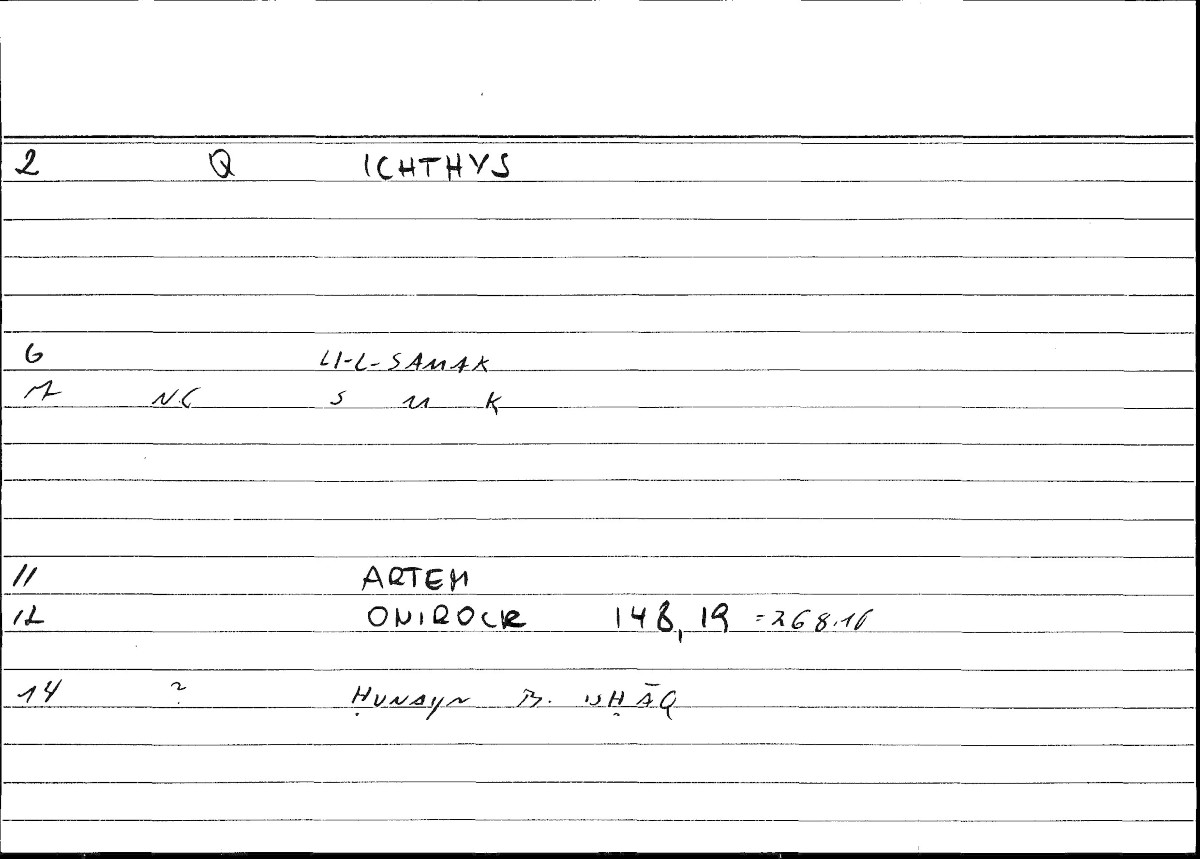 2 Q ICHTHYS
6 LI-L-SAMAK
7 NC S M K
11 ARTEM
12 ONIROCR 148,19 =268.16
14 ? ḤUNAYN B. ISḤĀQ